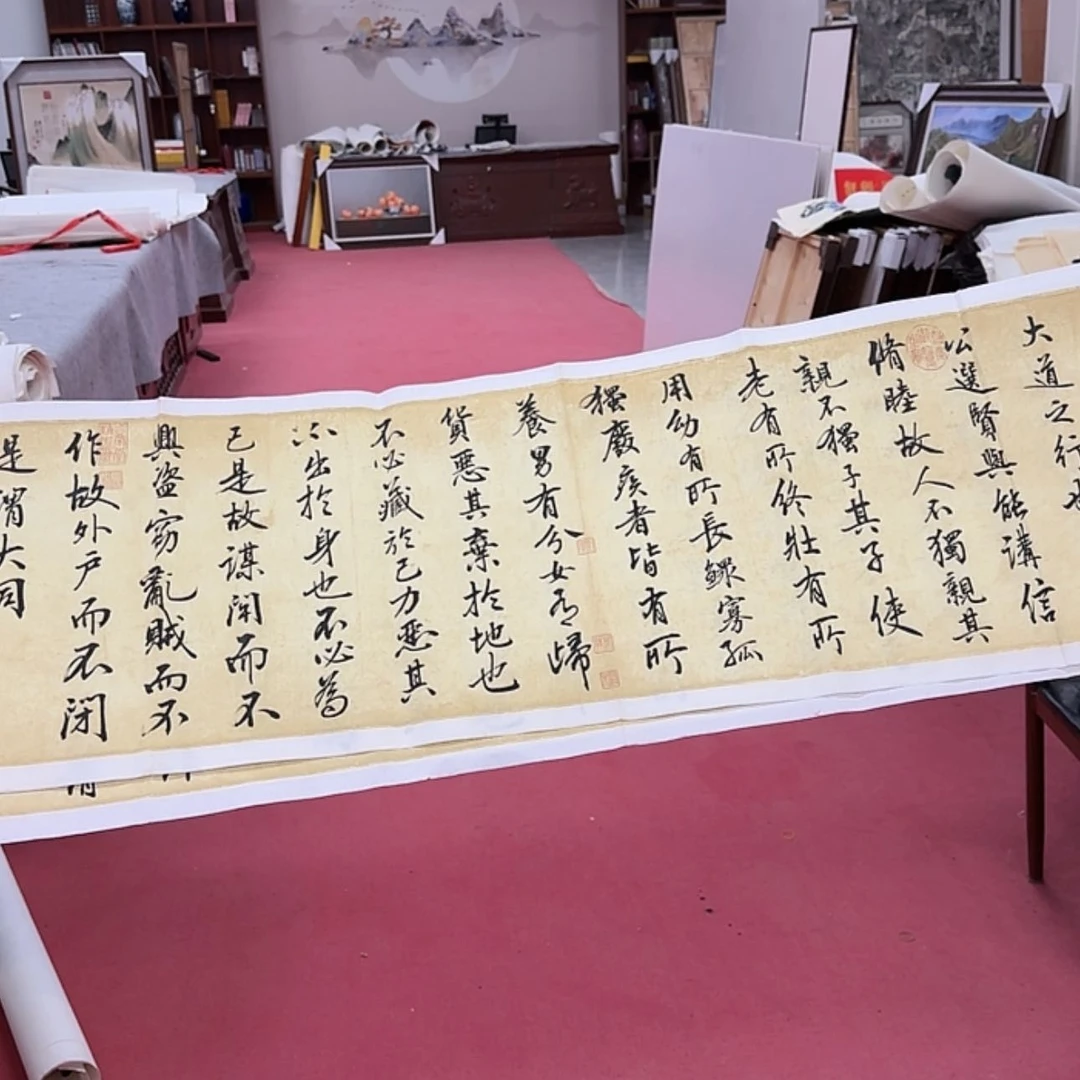 大道之行也
公選賢與能講信
脩睦故人不獨親其
親不獨子其子使
老有所終壯有所
用幼有所長鰥寡孤
獨廢疾者皆有所
養男有分女有歸
貨惡其棄於地也
不必藏於己力惡其
不出於身也不必為
己是故謀閉而不
興盜竊亂賊而不
作故外戶而不閉
是謂大同